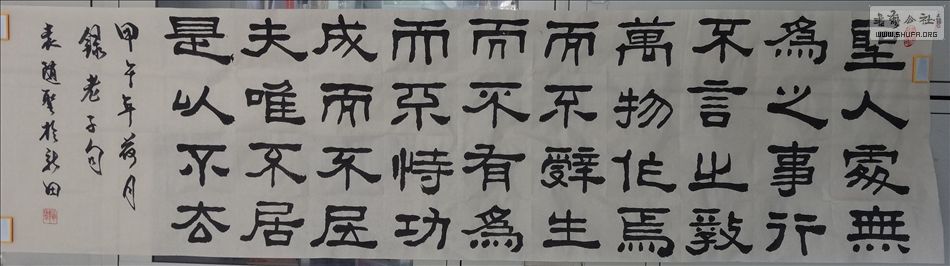 聖人處無
爲之事行
不言之教
萬物作焉
而不辭生
而不有爲
而不恃功
成而不居
夫唯不居
是以不去
甲午年荷月
錄老子句
袁隨聖於新田
WWW.SHUFA.ORG